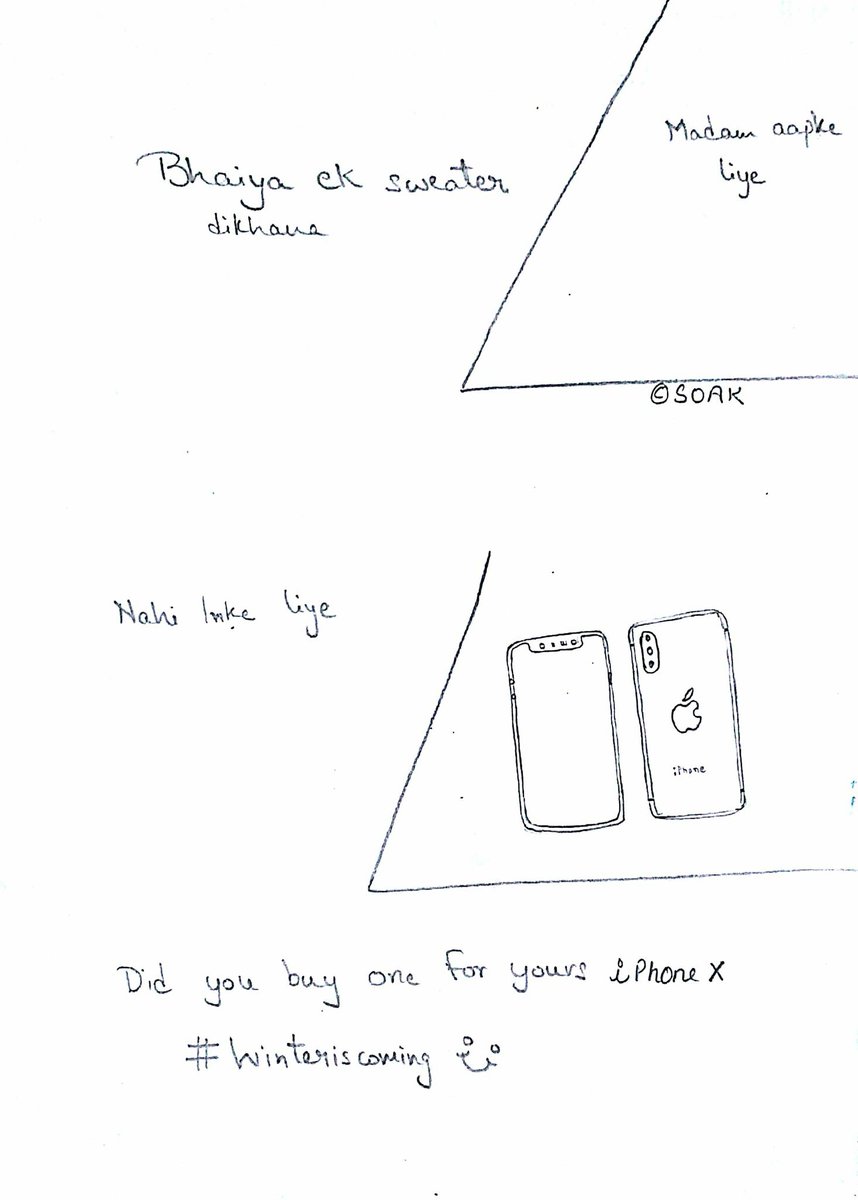 Bhaiya ek sweater
dikhana
Madam aapke
liye
©SOAK
Nahi Inke liye
iPhone
Did you buy one for yours iPhone X
#Winteriscoming